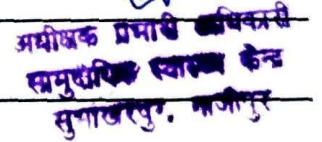 अधीक्षक प्रभारी अधिकारी
सामुदायिक स्वास्थ्य केन्द्र
गाजीपुर